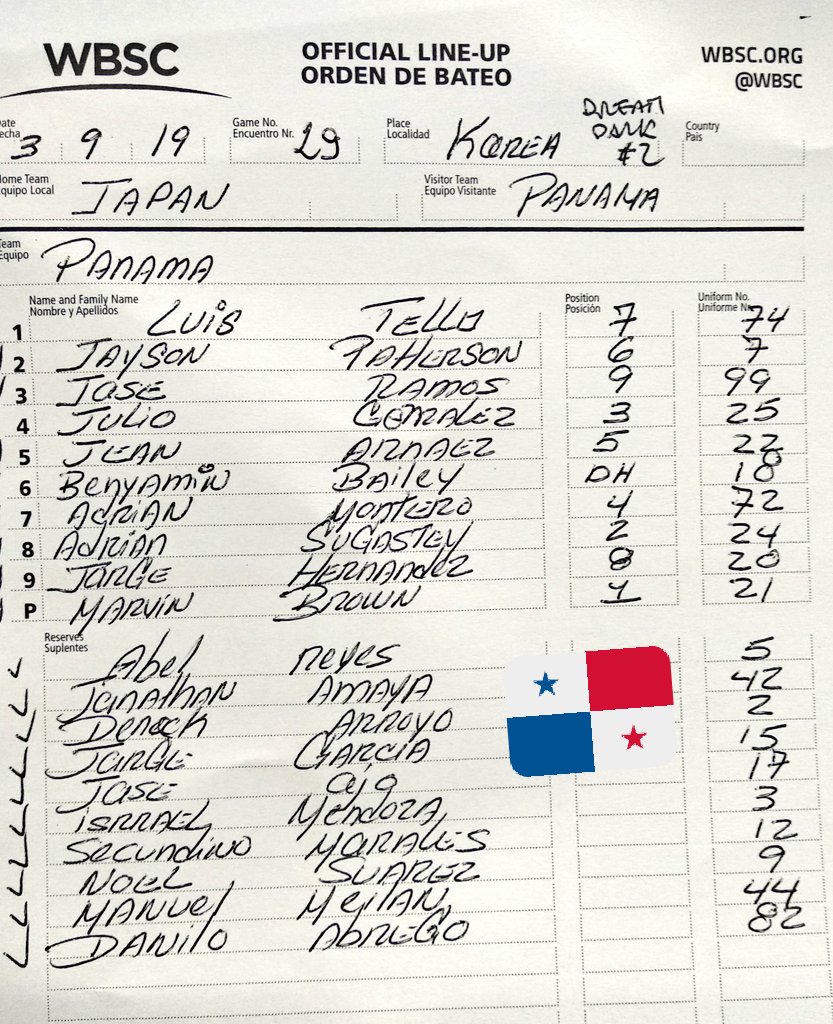 WBSC
OFFICIAL LINE-UP
ORDEN DE BATEO
WBSC.ORG
@WBSC
Date
Fecha 3 9 19
Game No.
Encuentro Nr. 29
Place
Localidad KOREA DREAM PARK #2
Country
País
Home Team
Equipo Local JAPAN
Visitor Team
Equipo Visitante PANAMA
Team
Equipo PANAMA
Name and Family Name
Nombre y Apellidos
Position
Posición
Uniform No.
Uniforme Nr.
1 LUIS TELLO 7 74
2 JAYSON PATTERSON 6 7
3 JOSE RAMOS 9 99
4 JULIO GONZALEZ 3 25
5 JEAN ARNAEZ 5 22
6 Benyamin Bailey DH 18
7 ADRIAN MONTERO 4 72
8 ADRIAN SUGASTEY 2 24
9 JORGE HERNANDEZ 8 20
P MARVIN BROWN 1 21
Reserves
Suplentes
Abel Reyes 5
Jonathan AMAYA 42
Dereck ARROYO 2
JORGE GARCIA 15
JOSE 17
ISRRAEL Mendoza 3
Secundino MORALES 12
NOEL SUAREZ 9
MANUEL MEILAN 44
DANILO ABREGO 82